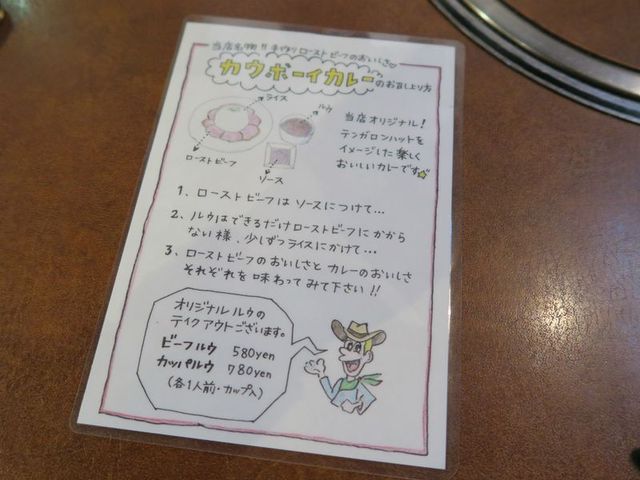 当店名物!!手作りローストビーフのおいしさ♡
カウボーイカレーのお召し上り方
ライス
ルウ
ローストビーフ
ソース
当店オリジナル!
テンガロンハットを
イメージした楽しく
おいしいカレーです☆
1、ローストビーフはソースにつけて…
2、ルウはできるだけローストビーフにかから
ない様、少しずつライスにかけて…
3、ローストビーフのおいしさとカレーのおいしさ
それぞれを味わってみて下さい!!
オリジナルルウの
テイクアウトございます。
ビーフルウ 580yen
カッパルウ 780yen
(各1人前・カップ入)